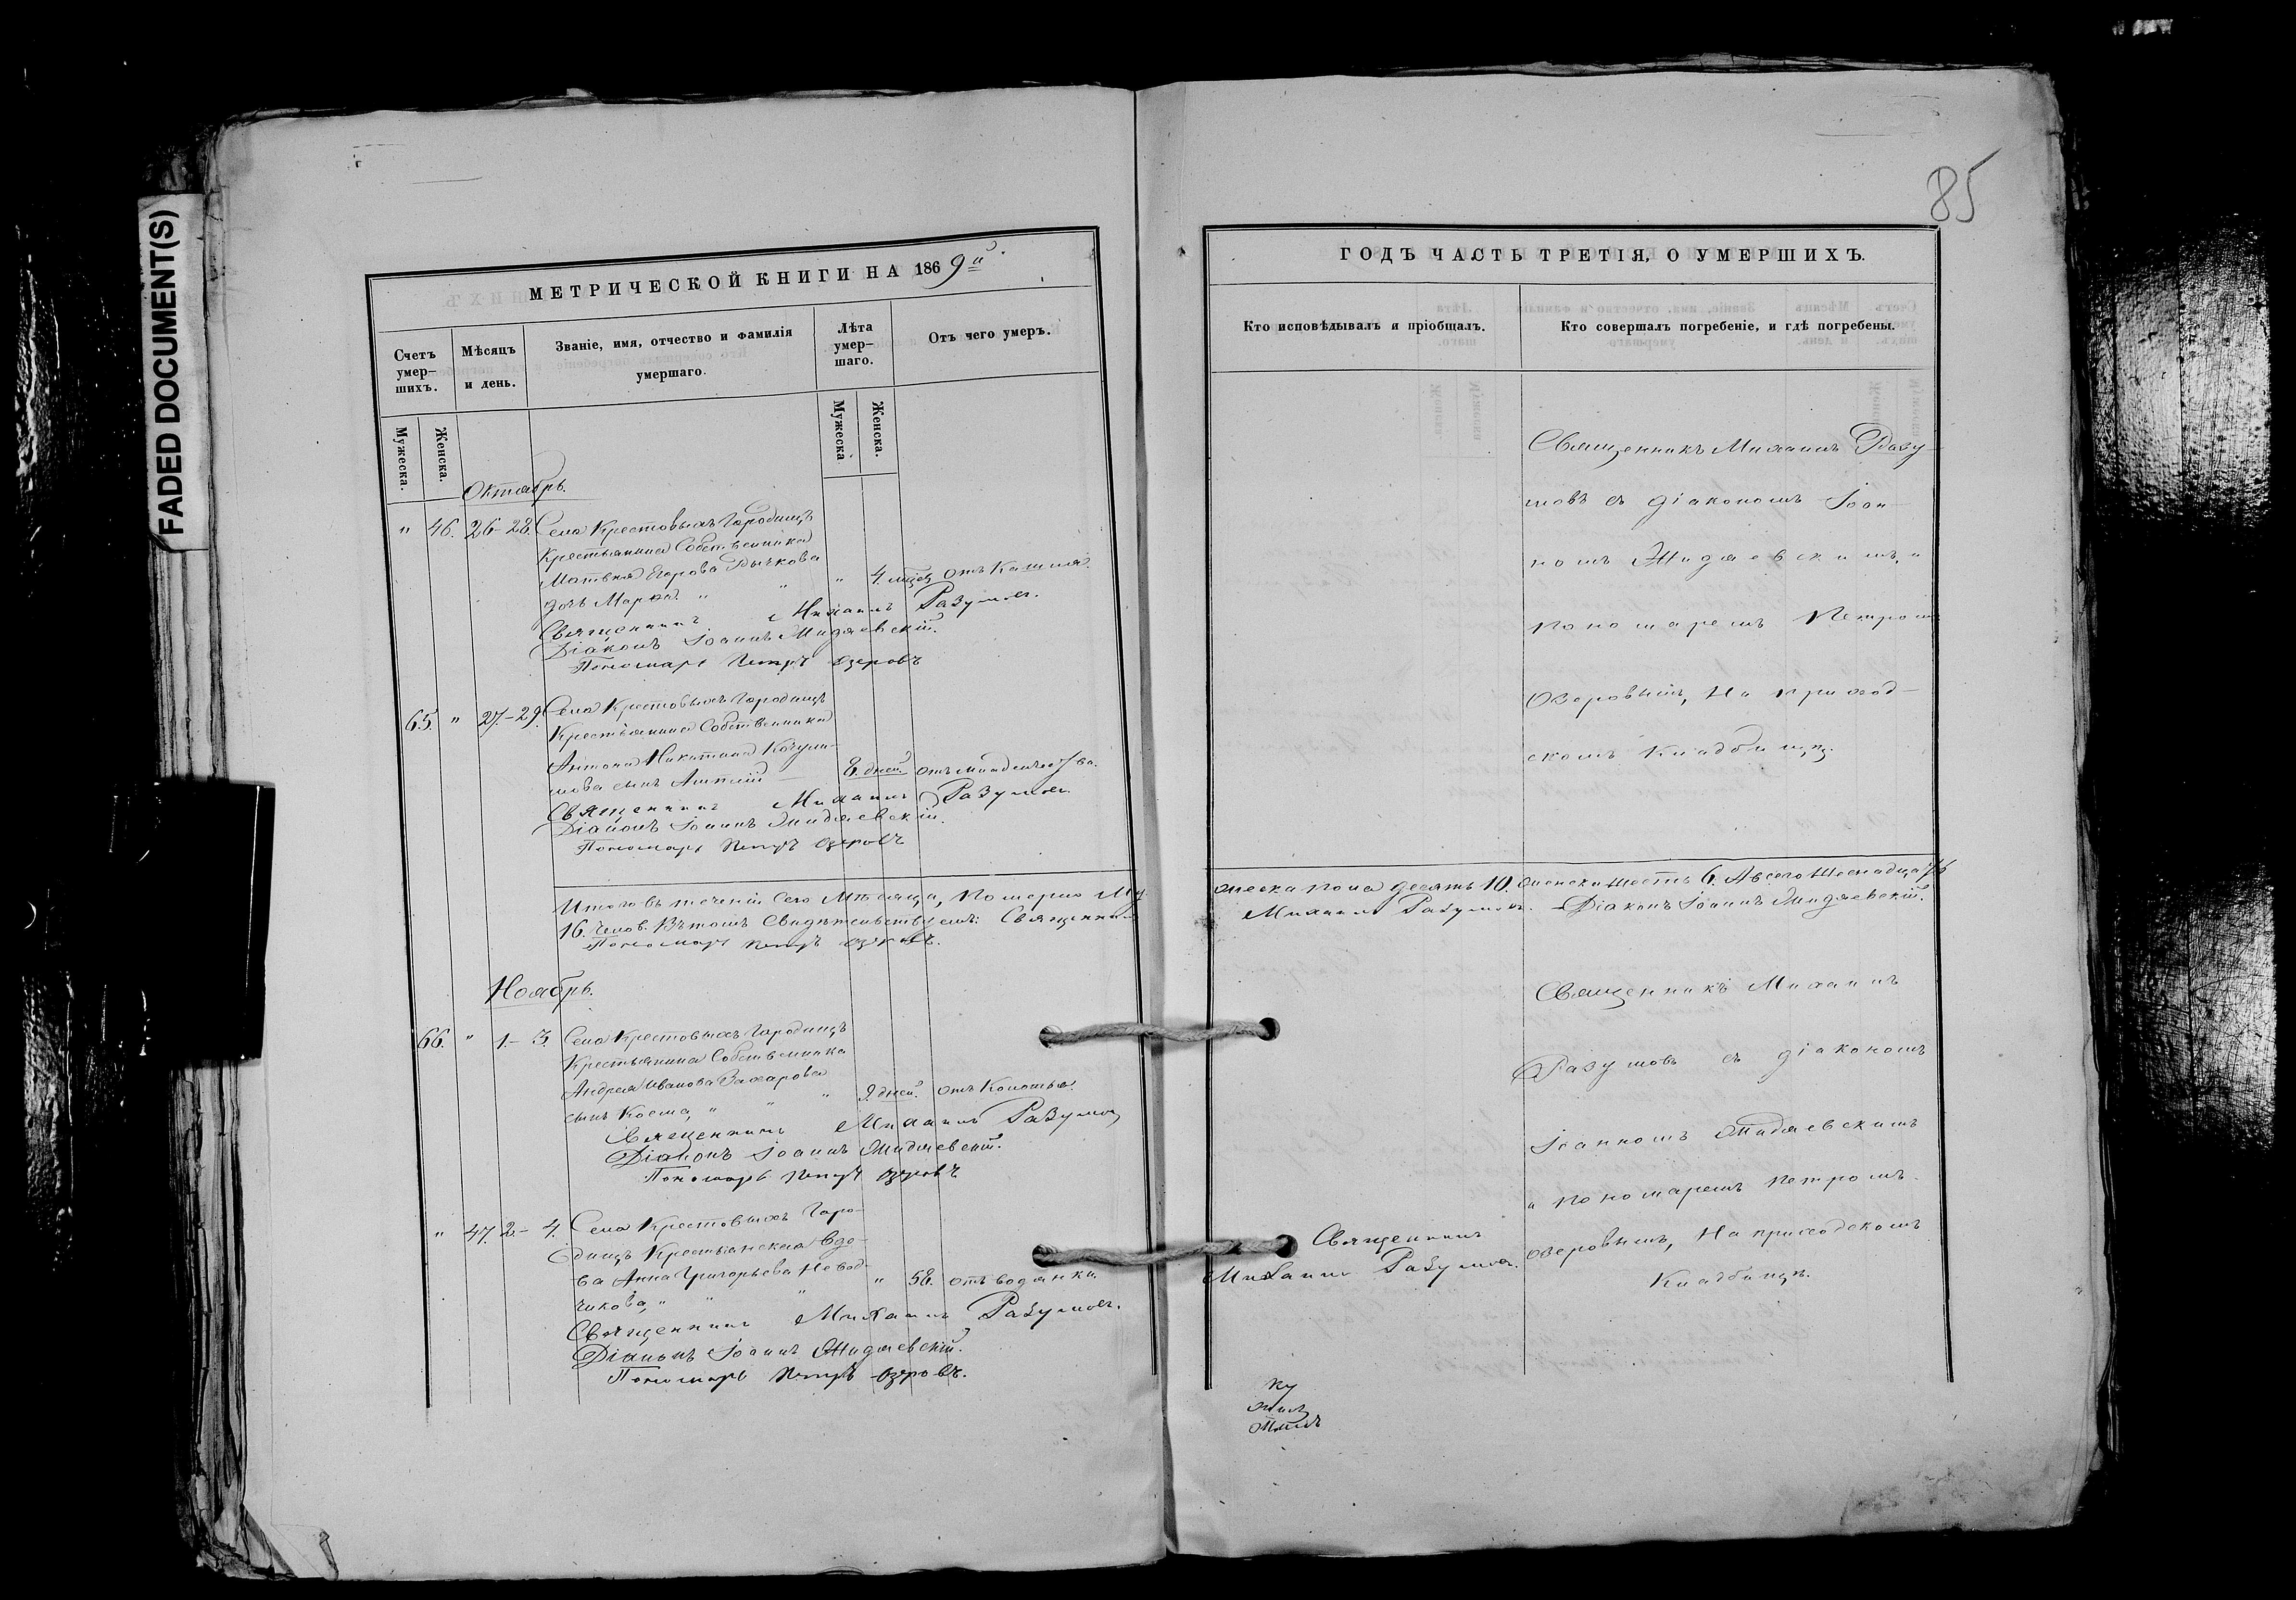 FADED DOCUMENT(S)
МЕТРИЧЕСКОЙ КНИГИ НА 1869й
Счетъ умер-шихъ.
Мѣсяцъ и день.
Званіе, имя, отчество и фамилія умершаго.
Лѣта умер-шаго.
Отъ чего умеръ.
Мужеска.
Женска.
Мужеска.
Женска.
Октябрь.
" 46. 26-28. Села Крестовыхъ Городищъ
Крестьянина Собственника
Матвея Егорова Рычкова
дочь " " " 4. отъ Кашля.
Священникъ Михаилъ Разумовъ.
Діаконъ Іоаннъ
Пономарь Петръ Озеровъ
65. " 27.-29. Села Крестовыхъ Городищъ
Крестьянина Собственника
Антона Никитина
сынъ 8. дней отъ младенчества.
Священникъ Михаилъ Разумовъ
Діаконъ Іоаннъ
Пономарь Петръ Озеровъ
Итого въ теченіи Сего Мѣсяца, Померло Му-
16. Челов. Въ томъ Свидѣтельствуемъ: Священникъ
Пономарь Петръ Озеровъ.
Ноябрь.
66. " 1.- 3. Села Крестовыхъ Городищъ
Крестьянина Собственника
Андрея Иванова Захарова
сынъ Косма, " " " 9. дней. отъ Колотья.
Священникъ Михаилъ Разумовъ
Діаконъ Іоаннъ
Пономарь Петръ Озеровъ
" 47. 2.- 4. Села Крестовыхъ Горо-
дищъ Крестьянская Вдо-
ва Анна Григорьева Невод-
чикова, " " " " 58. отъ водянки.
Священникъ Михаилъ Разумовъ.
Діаконъ Іоаннъ
Пономарь Петръ Озеровъ.
85
ГОДЪ ЧАСТЬ ТРЕТІЯ, О УМЕРШИХЪ.
Кто исповѣдывалъ и пріобщалъ.
Кто совершалъ погребеніе, и гдѣ погребены.
Священникъ Михаилъ Разу-
мовъ съ діакономъ Іоан-
номъ и
пономаремъ Петромъ
Озеровымъ, На приход-
скомъ Кладбищѣ.
жеска пола десять 10. Женска шесть 6. А всего Шеснадцать
Михаилъ Разумовъ. Діаконъ Іоаннъ
Священникъ Михаилъ
Разумовъ съ діакономъ
Іоанномъ
и пономаремъ Петромъ
Священникъ
Михаилъ Разумовъ.
Озеровымъ, На приходскомъ
Кладбищѣ.